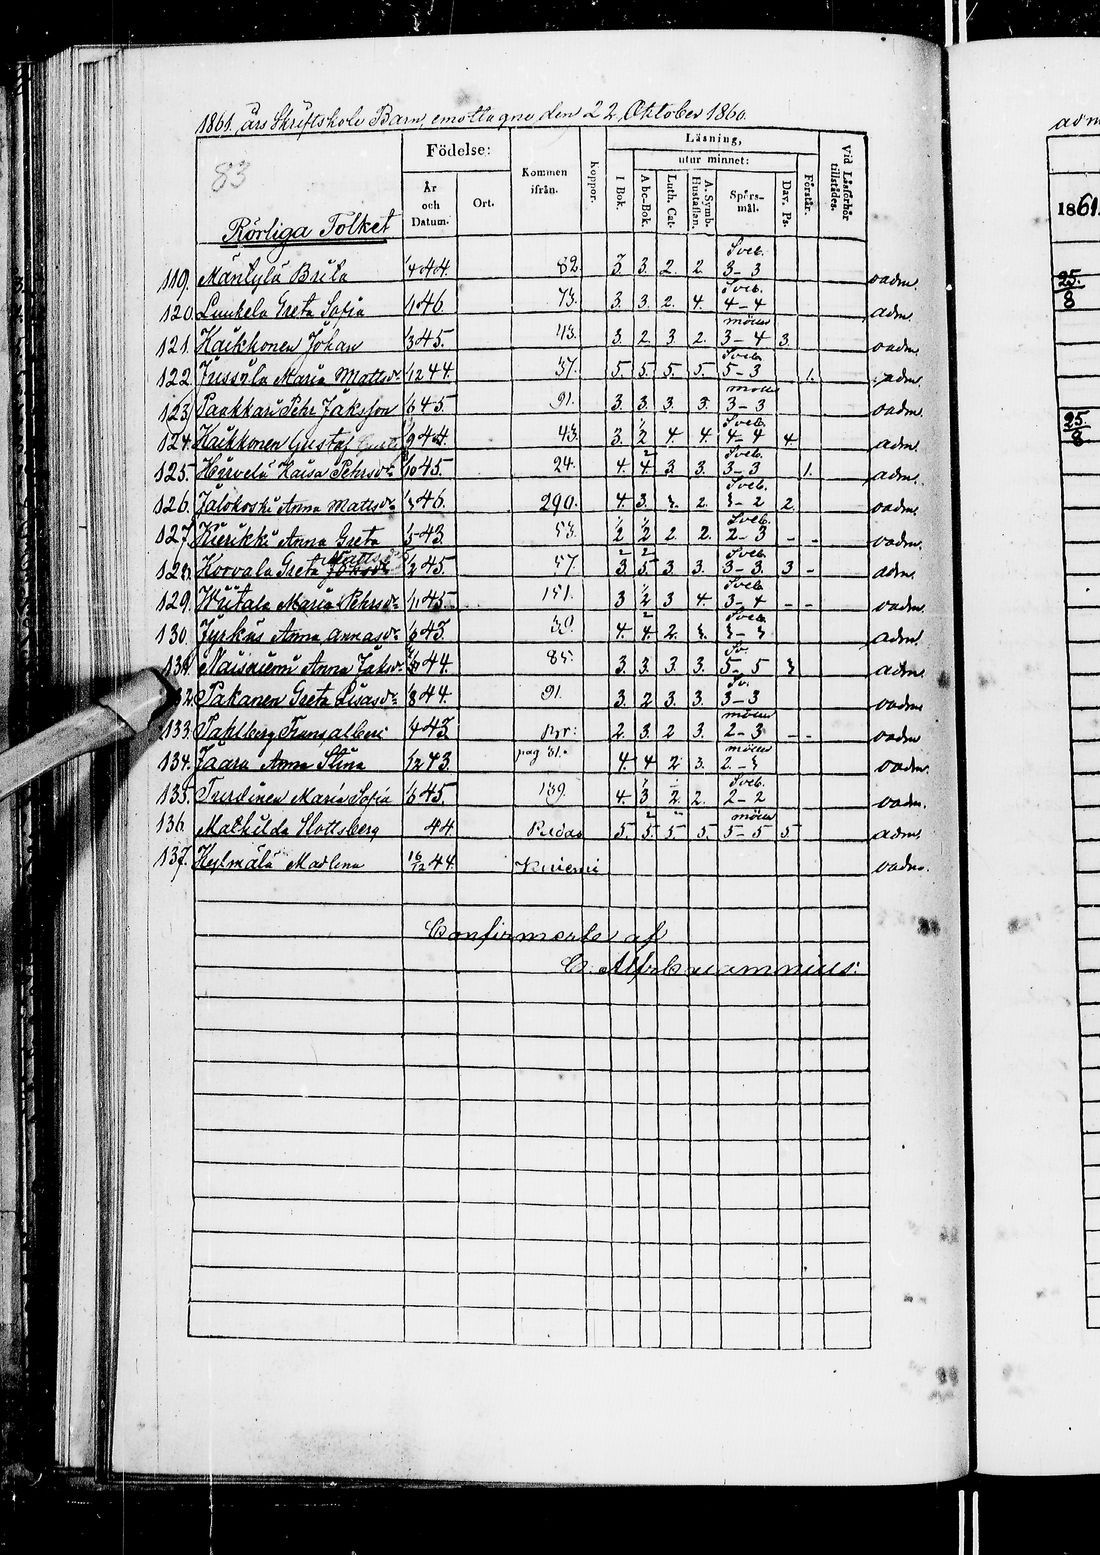 1861. års Skriftskole Barn, emottagne den 22 Oktober 1860.
83
Rörliga Folket
Födelse:
År och Datum.
Ort.
Kommen ifrån.
koppor.
Läsning,
utur minnet:
I Bok.
Abc-Bok.
Luth. Cat.
A. Symb. Hustaflan.
Spörs-mål.
Dav. Ps.
Förstår.
Vid Läsförhör tillstädes.
119. Mäntylä Brita 44. 82 3. 3. 2. 2 Sveb. 3-3 oadm.
120. Luukela Greta Sofia 46. 73. 3. 3. 2. 4. Sveb. 4-4 adm.
121. Kaikkonen Johan 45. 43. 3. 2 3 2. 3-4 3. oadm.
122. Jussila Maria Mattsdr 44. 37. 5. 5. 5. 5. Sveb. 5-3 1. adm.
123. Paakkari Pehr Jaksson 45. 91. 3. 3. 3. 3. 3-3 oadm.
124. Kaikkonen Gustaf 44. 43. 3. 2 4. 4. Sveb. 4-4 4. adm.
125. Hervelä Kaisa Pehrsdr 45. 24. 4. 4. 3 3. Sveb. 3-3 1. adm.
126. Jalokoski Anna Mattsdr 46. 290. 4. 3. 2. Sveb. 2 2. oadm.
127. Kierikki Anna Greta 43. 53. 2 2 2. 2. Sveb. 2-3 - - oadm.
128. Korvala Greta Matts 45. 57. 3. 5 3. 3. Sveb. 3-3 3 - adm.
129. Anna Maria Pehrsdr 45. 151. 3 2 3 4. Sveb. 3-4 - - oadm.
130. Jyrkäs Anna Annasdr 43. 39. 4. 4. 2. Sveb. adm.
131. Maisniemi Anna Jaksdr 44. 85. 3. 3. 3. 3. Sv. 5-5 adm.
132. Pakanen Greta Lisasdr 44. 91. 3. 2 3. 3. Sv. 3-3 oadm
133. Pahlberg Frans Alberi 43 Br: 2. 3. 2 3. 2-3 - - oadm
134. Jaara Anna Stina 43. pag 31. 4. 4 2 3. 2- oadm.
135. Turdinen Maria Sofia 45. 139 4. 3 2. 2. Sveb. 2-2 oadm.
136. Mathilda Slottsberg 44. Pudas 5. 5. 5. 5 5-5 5 adm.
137. Kylmälä Madlena 16/12 44. Kuiemi oadm.
Confirmerte af
1861.
25/8
25/8